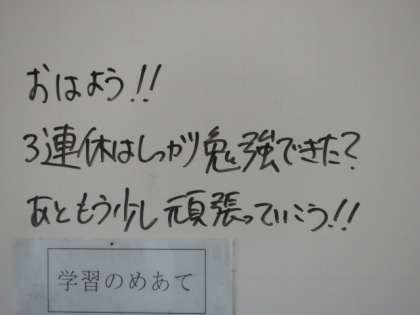 おはよう!!
3連休はしっかり勉強できた?
あともう少し頑張っていこう!!
学習のめあて